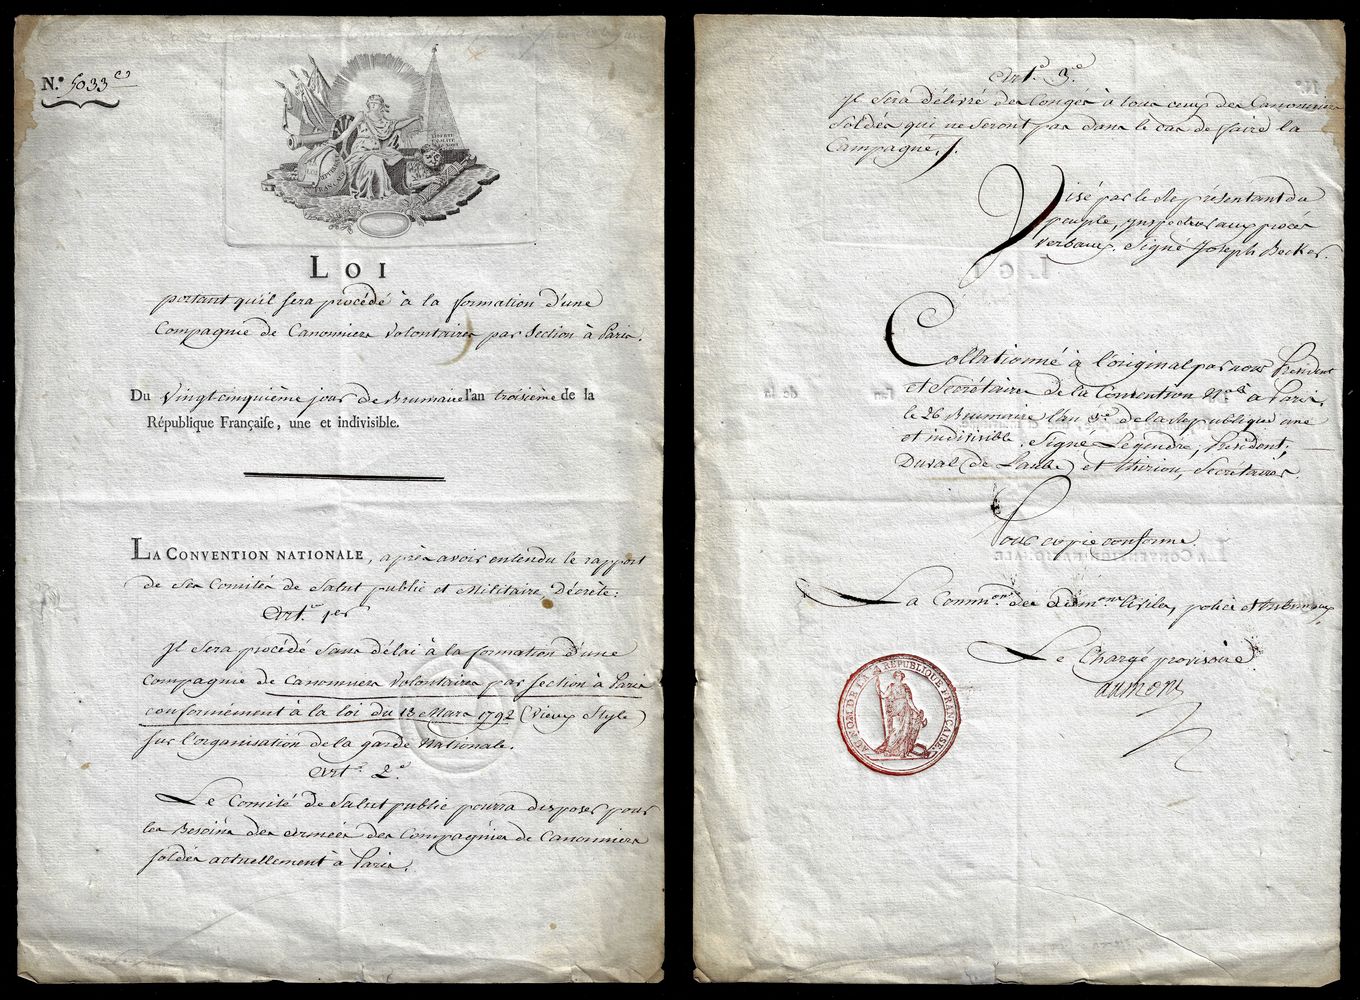 N.º 5033 e
LIBERTÉ
ÉGALITÉ
LOI
portant qu'il sera procédé à la formation d'une
Compagnie de Canonniers Volontaires par Section à Paris.
Du Vingt-cinquième jour de Brumaire l'an troisième de la
République Françaiſe, une et indivisible.
LA CONVENTION NATIONALE, après avoir entendu le rapport
de Ses Comités de Salut public et Militaire, Décrète:
Art.e 1er
Il Sera procédé Sans délai à la formation d'une
Compagnie de Canonniers Volontaires par Section à Paris
conformément à la loi du 18 Mars 1792 (Vieux Style)
sur l'organisation de la garde Nationale.
Art.e 2.e
Le Comité de Salut public pourra disposer pour
les Besoins des armées des Compagnies de Canonniers
soldés actuellement à Paris.
Art.e 3.e
Il Sera délivré des Congés à tous ceux des Canonniers
Soldés qui ne Seront pas dans le cas de faire la
Campagne./.
Visé par le Représentant du
peuple, ynspecteur aux procès
verbaux. Signé Joseph Becker.
Collationné à l'original par nous Président
et Secrétaires de la Convention N.ale à Paris,
le 26 Brumaire l'an 3.e de la République une
et indivisible. Signé Legendre, Président;
Duval (de Laube) et thirion, Secrétaires.
Pour copie conforme
La Comm.on des adm.ons Civiles, police et tribunaux
Le Chargé provisoire
aumont
AU NOM DE LA RÉPUBLIQUE FRANÇAISE